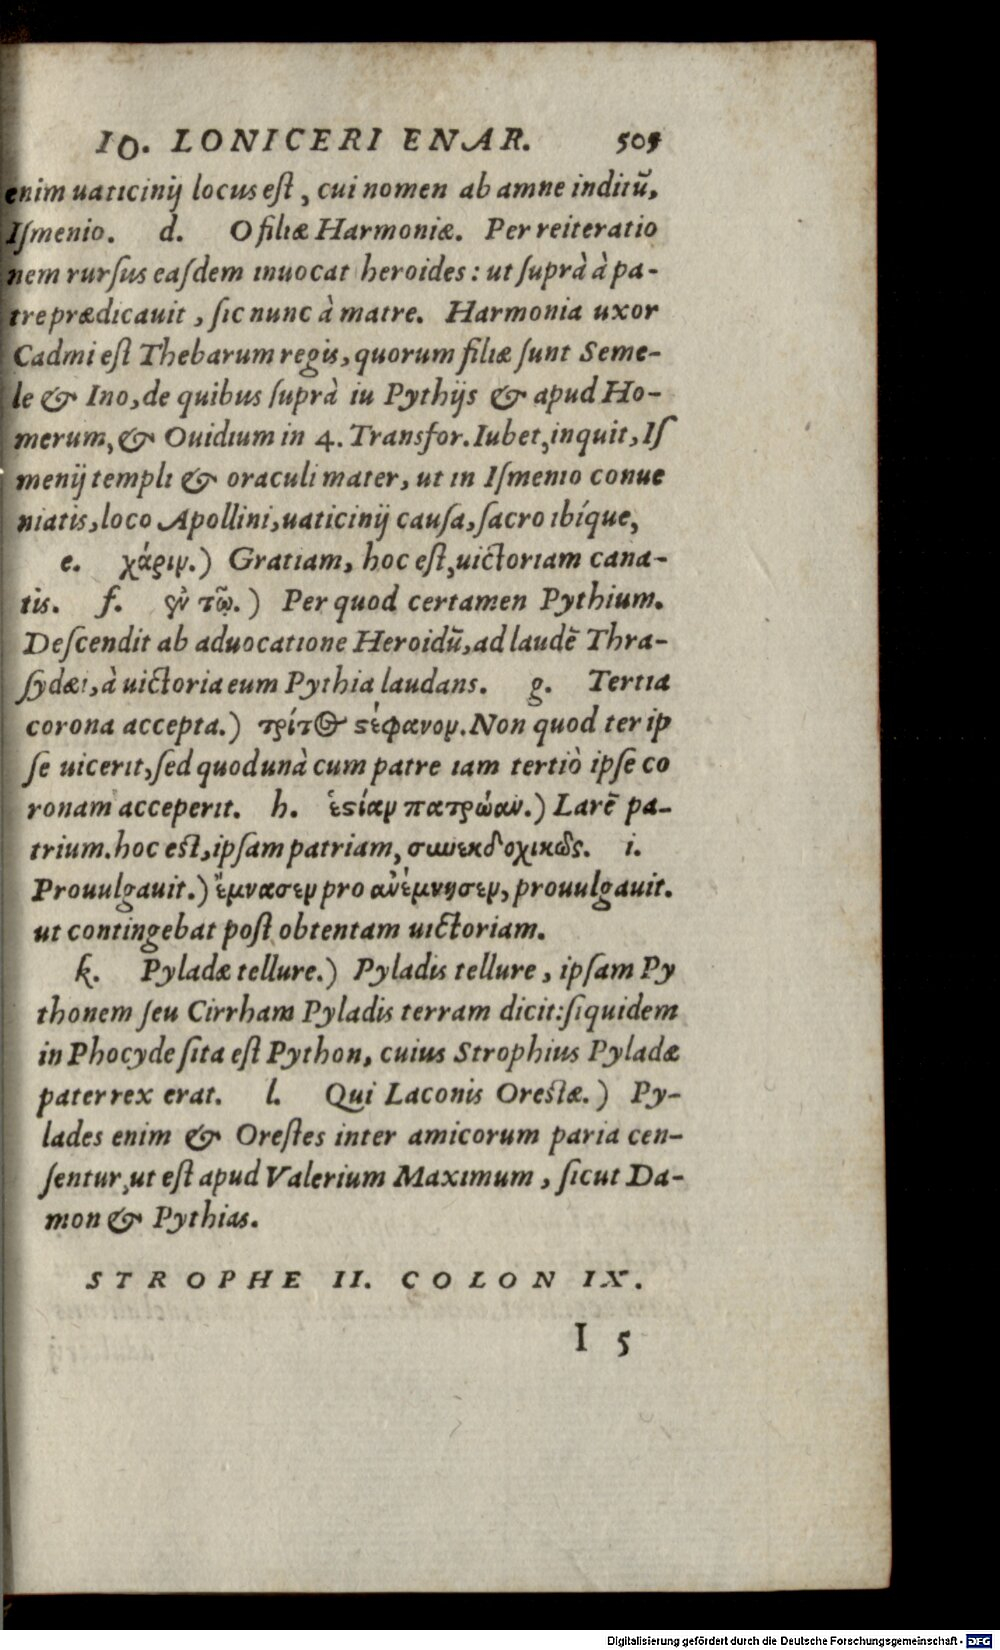 IO. LONICERI ENAR. 505
enim uaticinij locus est, cui nomen ab amne inditū,
Ismenio. d. O filiæ Harmoniæ. Per reiteratio
nem rursus easdem inuocat heroides: ut suprà à pa-
tre prædicauit, sic nunc à matre. Harmonia uxor
Cadmi est Thebarum regis, quorum filiæ sunt Seme-
le & Ino, de quibus suprà iu Pythijs & apud Ho-
merum, & Ouidium in 4. Transfor. Iubet, inquit, Is
menij templi & oraculi mater, ut in Ismenio conue
niatis, loco Apollini, uaticinij causa, sacro ibíque,
e. χάριν.) Gratiam, hoc est, uictoriam cana-
tis. f. ἐν τῷ.) Per quod certamen Pythium.
Descendit ab aduocatione Heroidū, ad laudē Thra-
sydæi, à uictoria eum Pythia laudans. g. Tertia
corona accepta.) τρίτος στέφανον. Non quod ter ip
se uicerit, sed quod unà cum patre iam tertiò ipse co
ronam acceperit. h. ἑστίαν πατρώαν.) Larē pa-
trium. hoc est, ipsam patriam, συνεκδοχικῶς. i.
Prouulgauit.) ἔμνασεν pro ἀνέμνησεν, prouulgauit.
ut contingebat post obtentam uictoriam.
k. Pyladæ tellure.) Pyladis tellure, ipsam Py
thonem seu Cirrham Pyladis terram dicit: siquidem
in Phocyde sita est Python, cuius Strophius Pyladæ
pater rex erat. l. Qui Laconis Orestæ.) Py-
lades enim & Orestes inter amicorum paria cen-
sentur, ut est apud Valerium Maximum, sicut Da-
mon & Pythias.
STROPHE II. COLON IX.
I 5
Digitalisierung gefördert durch die Deutsche Forschungsgemeinschaft - DFG